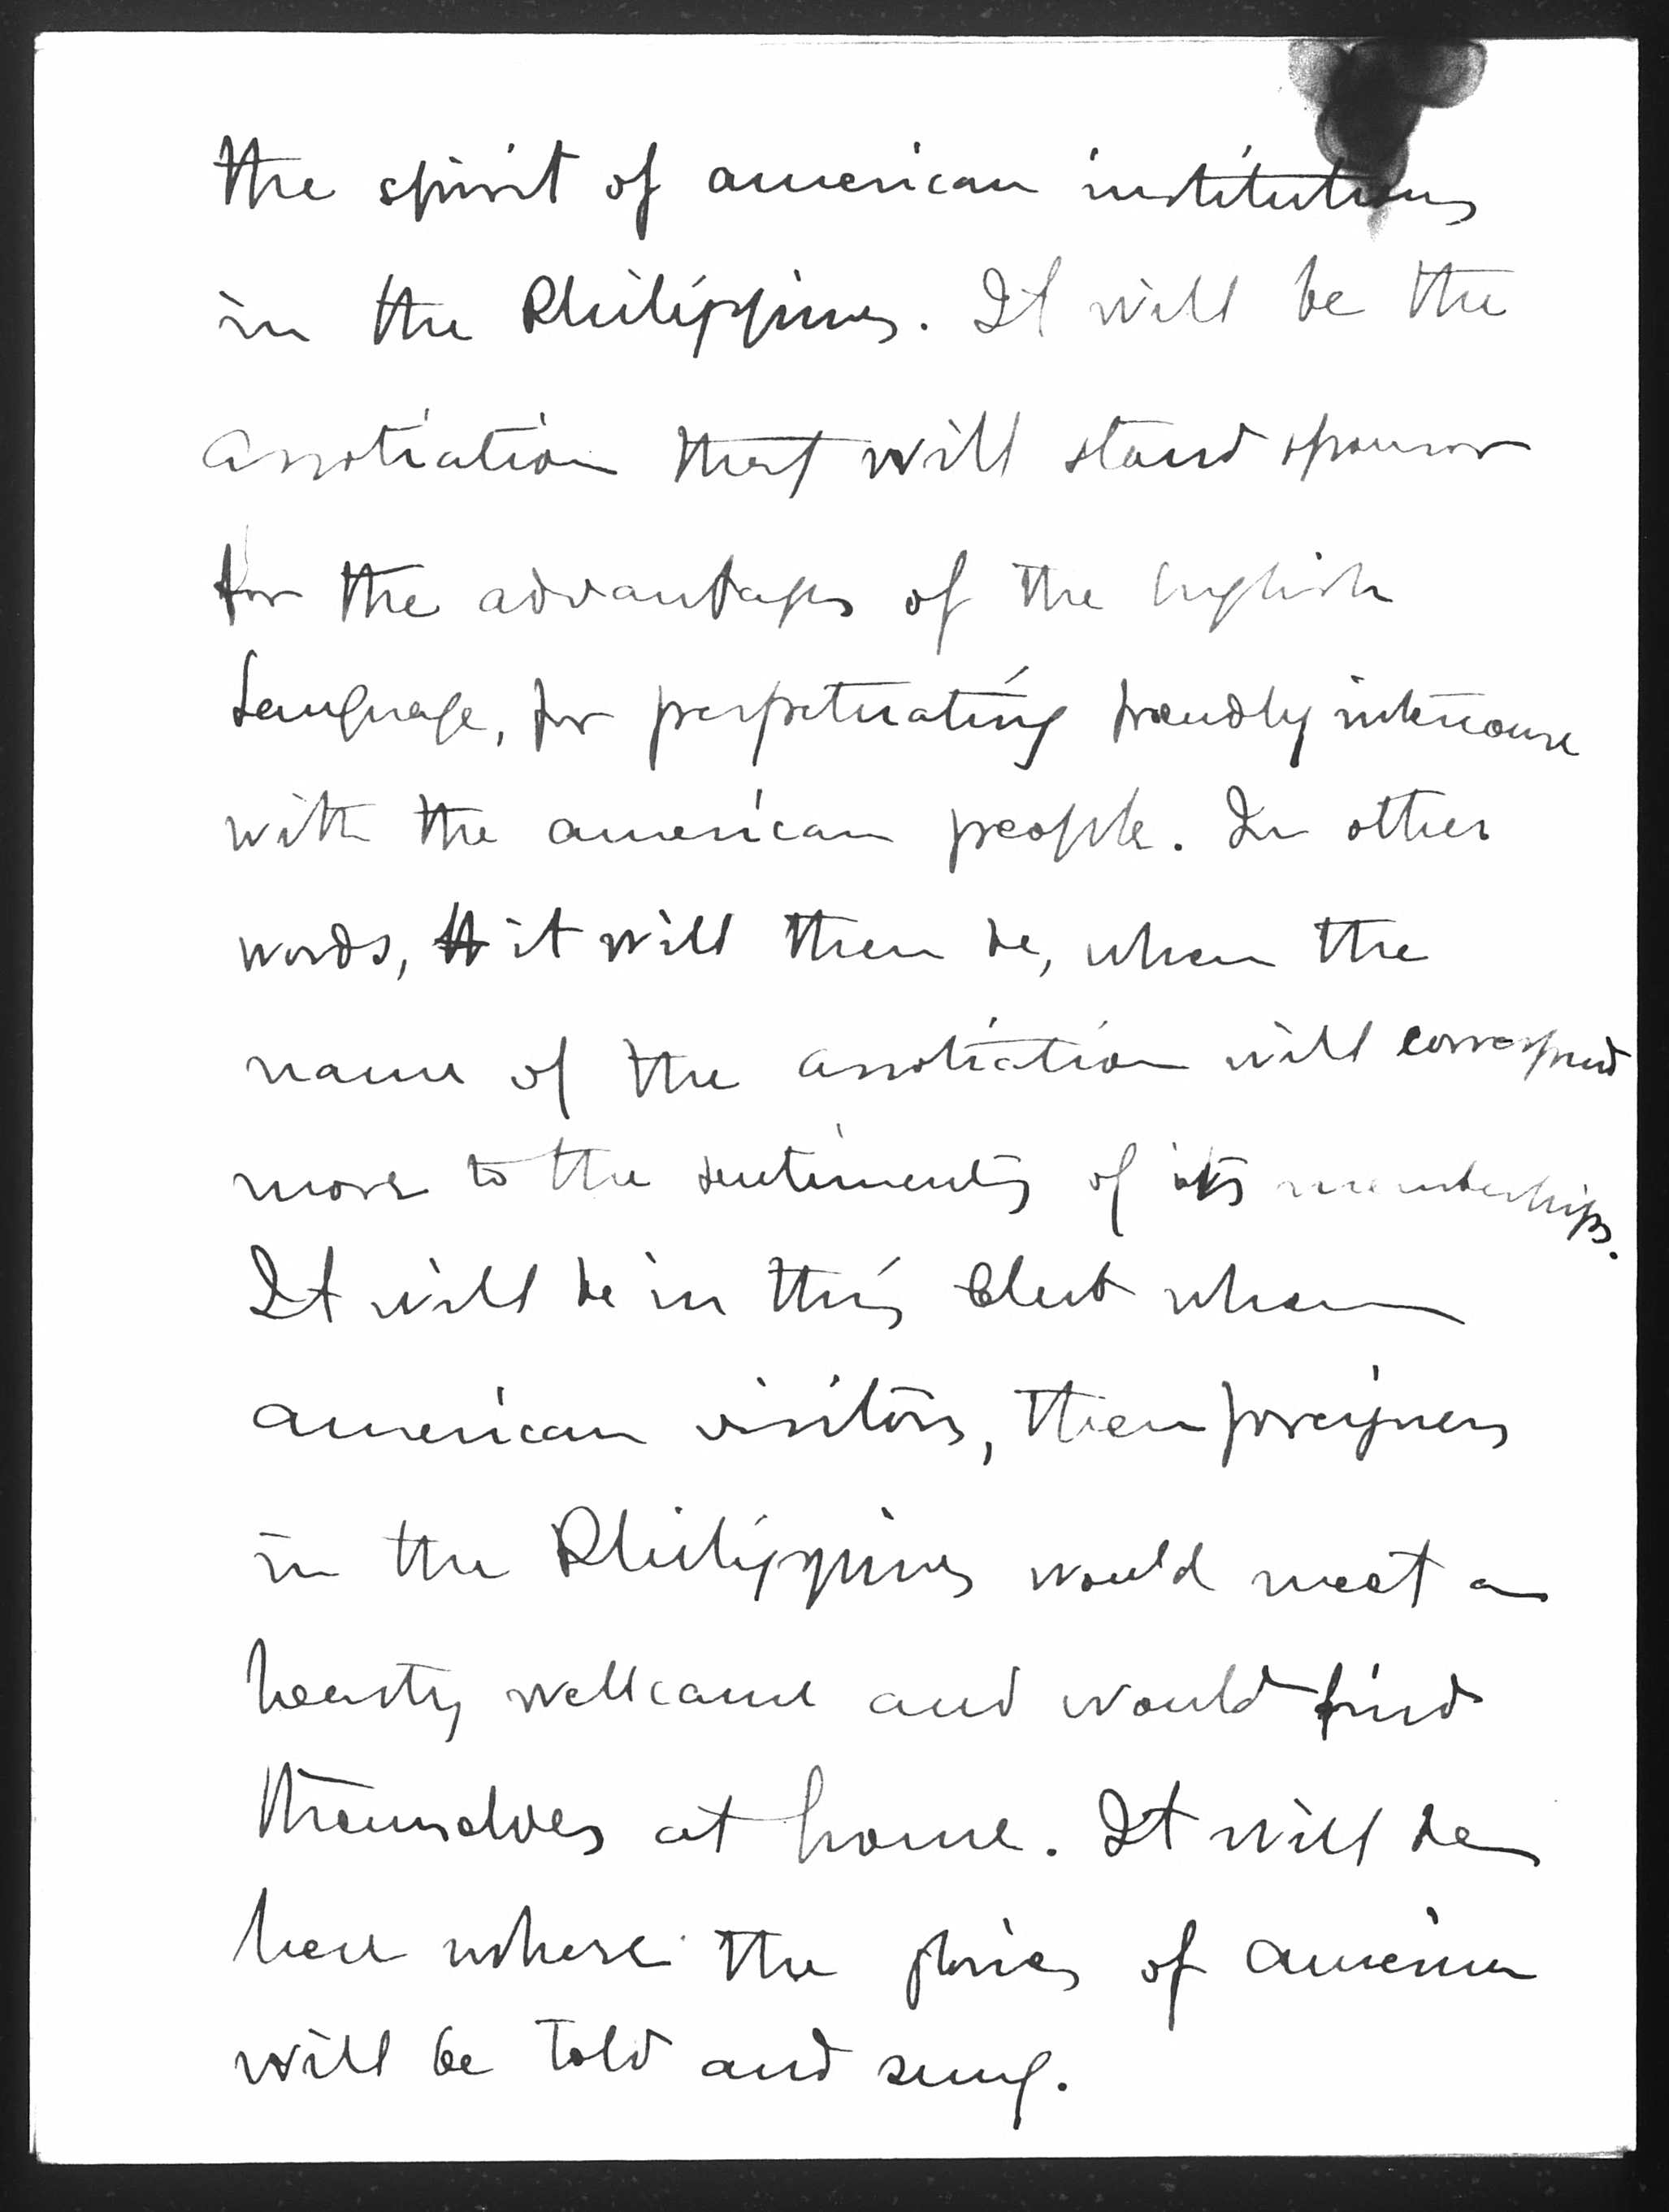 the spirit of american institutions
in the Philippines. It will be the
assotiation that will stand sponsor
for the advantages of the english
Language, for perpetuating friendly intercourse
with the american people. In other
words, it will then be, when the
name of the assotiation will correspond
more to the sentiments of its memberships.
It will be in this Club when
american visitors, then foreigners
in the Philippines would meet a
hearty wellcame and would find
themselves at home. It will be
here where the glories of america
will be told and sung.